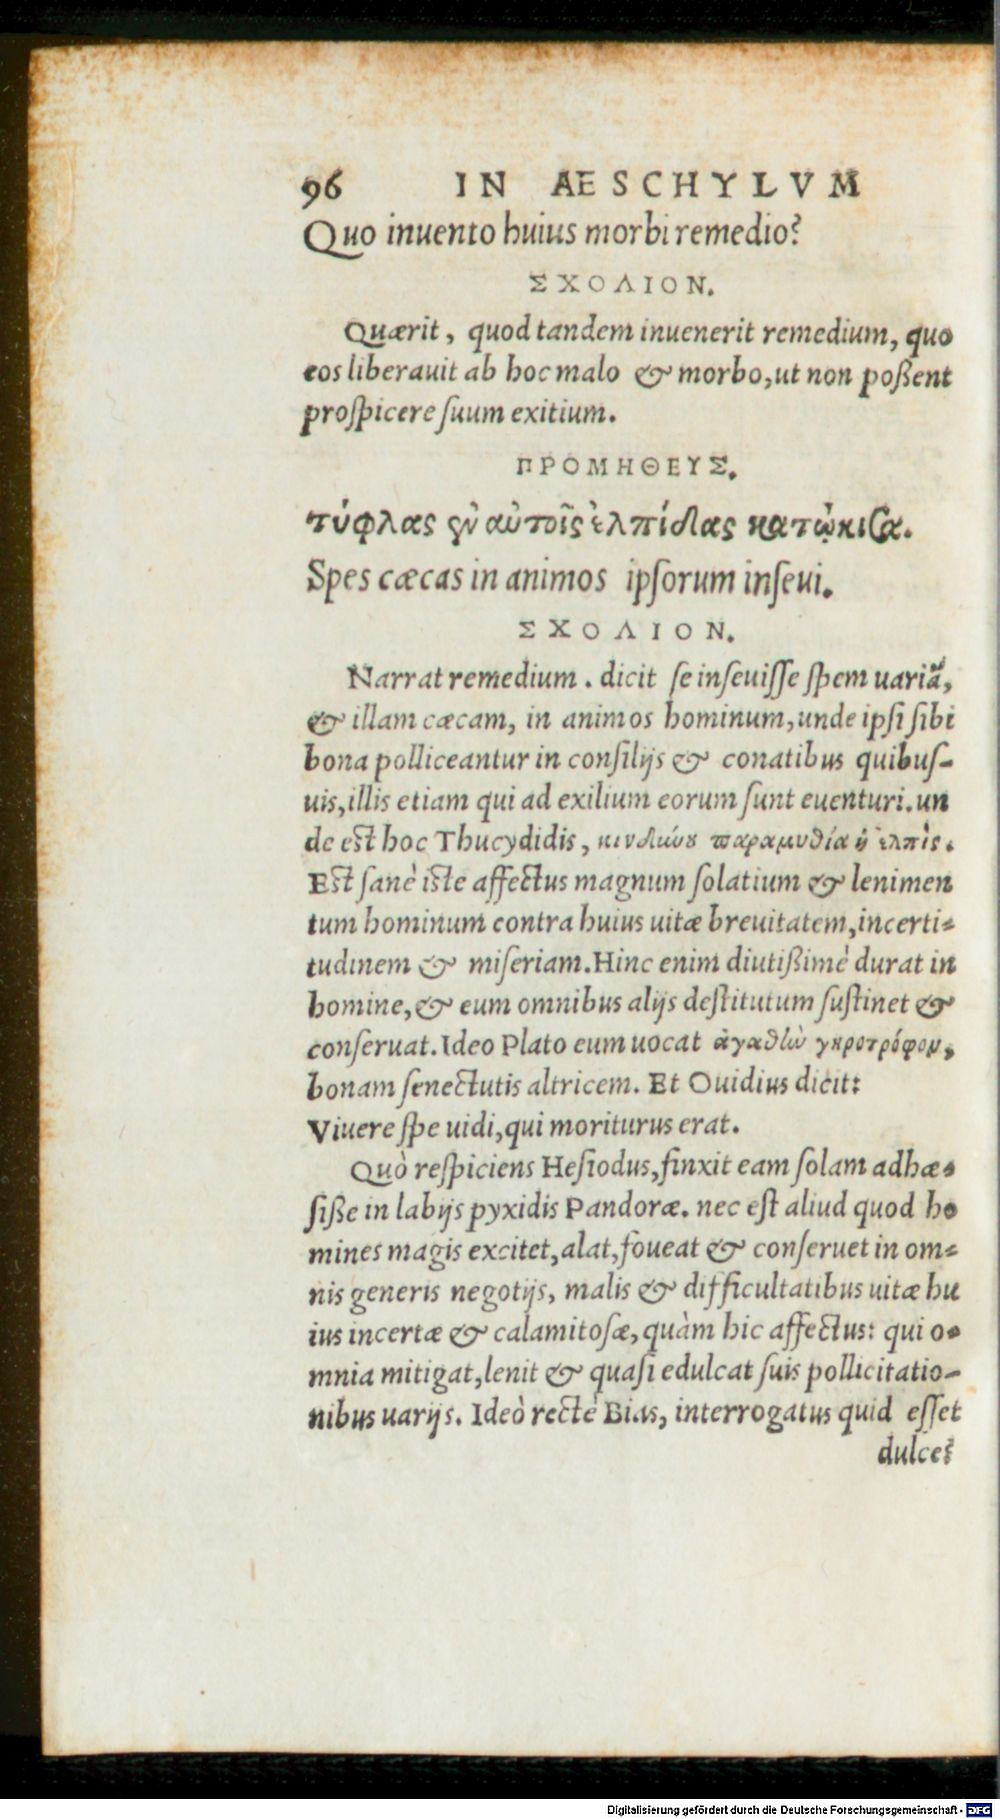 96 IN AESCHYLVM
Quo inuento huius morbi remedio?
ΣΧΟΛΙΟΝ.
Quærit, quod tandem inuenerit remedium, quo
eos liberauit ab hoc malo & morbo, ut non poßent
prospicere suum exitium.
ΠΡΟΜΗΘΕΥΣ.
τύφλας ἐν αὐτοῖς ἐλπίδας κατῴκισα.
Spes cæcas in animos ipsorum inseui.
ΣΧΟΛΙΟΝ.
Narrat remedium. dicit se inseuisse spem uariã,
& illam cæcam, in animos hominum, unde ipsi sibi
bona polliceantur in consilijs & conatibus quibus-
uis, illis etiam qui ad exilium eorum sunt euenturi. un
de est hoc Thucydidis, κινδιώου παραμυθία ἡ ἐλπὶς.
Est sanè iste affectus magnum solatium & lenimen
tum hominum contra huius uitæ breuitatem, incerti-
tudinem & miseriam. Hinc enim diutißimè durat in
homine, & eum omnibus alijs destitutum sustinet &
conseruat. Ideo Plato eum uocat ἀγαθὼ γηροτρόφον,
bonam senectutis altricem. Et Ouidius dicit:
Viuere spe uidi, qui moriturus erat.
Quò respiciens Hesiodus, finxit eam solam adhæ-
siße in labijs pyxidis Pandoræ. nec est aliud quod ho
mines magis excitet, alat, foueat & conseruet in om-
nis generis negotijs, malis & difficultatibus uitæ hu
ius incertæ & calamitosæ, quàm hic affectus: qui o-
mnia mitigat, lenit & quasi edulcat suis pollicitatio-
nibus uarijs. Ideò rectè Bias, interrogatus quid esset
dulce?
Digitalisierung gefördert durch die Deutsche Forschungsgemeinschaft - DFG